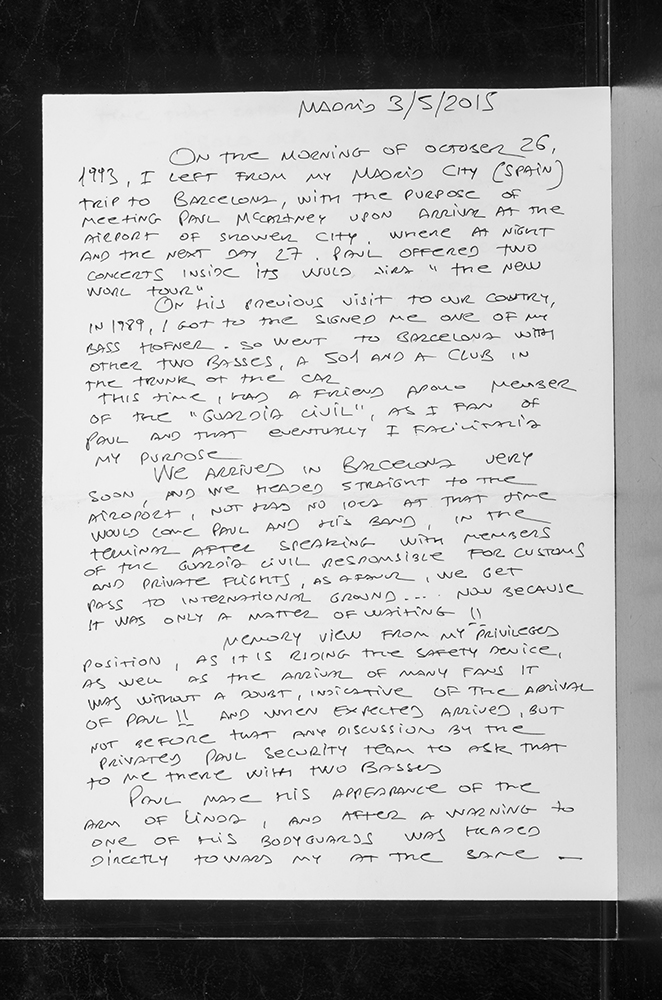 MADRID 3/5/2015
ON THE MORNING OF OCTOBER 26,
1993, I LEFT FROM MY MADRID CITY (SPAIN)
TRIP TO BARCELONA, WITH THE PURPOSE OF
MEETING PAUL MCCARTNEY UPON ARRIVAL AT THE
AIRPORT OF SHOWER CITY, WHERE AT NIGHT
AND THE NEXT DAY 27. PAUL OFFERED TWO
CONCERTS INSIDE ITS WULD JIRA "THE NEW
WORL TOUR"
ON HIS PREVIOUS VISIT TO OUR CONTRY,
IN 1989, I GOT TO THE SIGNED ME ONE OF MY
BASS HOFNER. SO WENT TO BARCELONA WITH
OTHER TWO BASSES, A 501 AND A CLUB IN
THE TRUNK OT THE CAR
THIS TIME, HAD A FRIEND MEMBER
OF THE "GUARDIA CIVIL", AS I FAN OF
PAUL AND THAT EVENTUALLY I FACILITARIA
MY PURPOSE
WE ARRIVED IN BARCELONA VERY
SOON, AND WE HEADED STRAIGHT TO THE
AIROPORT, NOT HAD NO IDEA AT THAT TIME
WOULD COME PAUL AND HIS BAND, IN THE
TERMINAL AFTER SPEAKING WITH MEMBERS
OF THE GUARDIA CIVIL RESPONSIBLE FOR CUSTOMS
AND PRIVATE FLIGHTS, AS A FAVUR, WE GET
PASS TO INTERNATIONAL GROUND.... NOW BECAUSE
IT WAS ONLY A MATTER OF WAITING !!
MEMORY VIEW FROM MY PRIVILEGED
POSITION, AS IT IS RIDING THE SAFETY DEVICE,
AS WELL AS THE ARRIVAL OF MANY FANS IT
WAS WITHOUT A DOUBT, INDICATIVE OF THE ARRIVAL
OF PAUL !! AND WHEN EXPECTED ARRIVED, BUT
NOT BEFORE THAT ANY DISCUSSION BY THE
PRIVATED PAUL SECURITY TEAM TO ASK THAT
TO ME THERE WITH TWO BASSES
PAUL MADE HIS APPEARANCE OF THE
ARM OF LINDA, AND AFTER A WARNING TO
ONE OF HIS BODYGUARDS WAS HEADED
DIRECTLY TOWARD MY AT THE SAME —